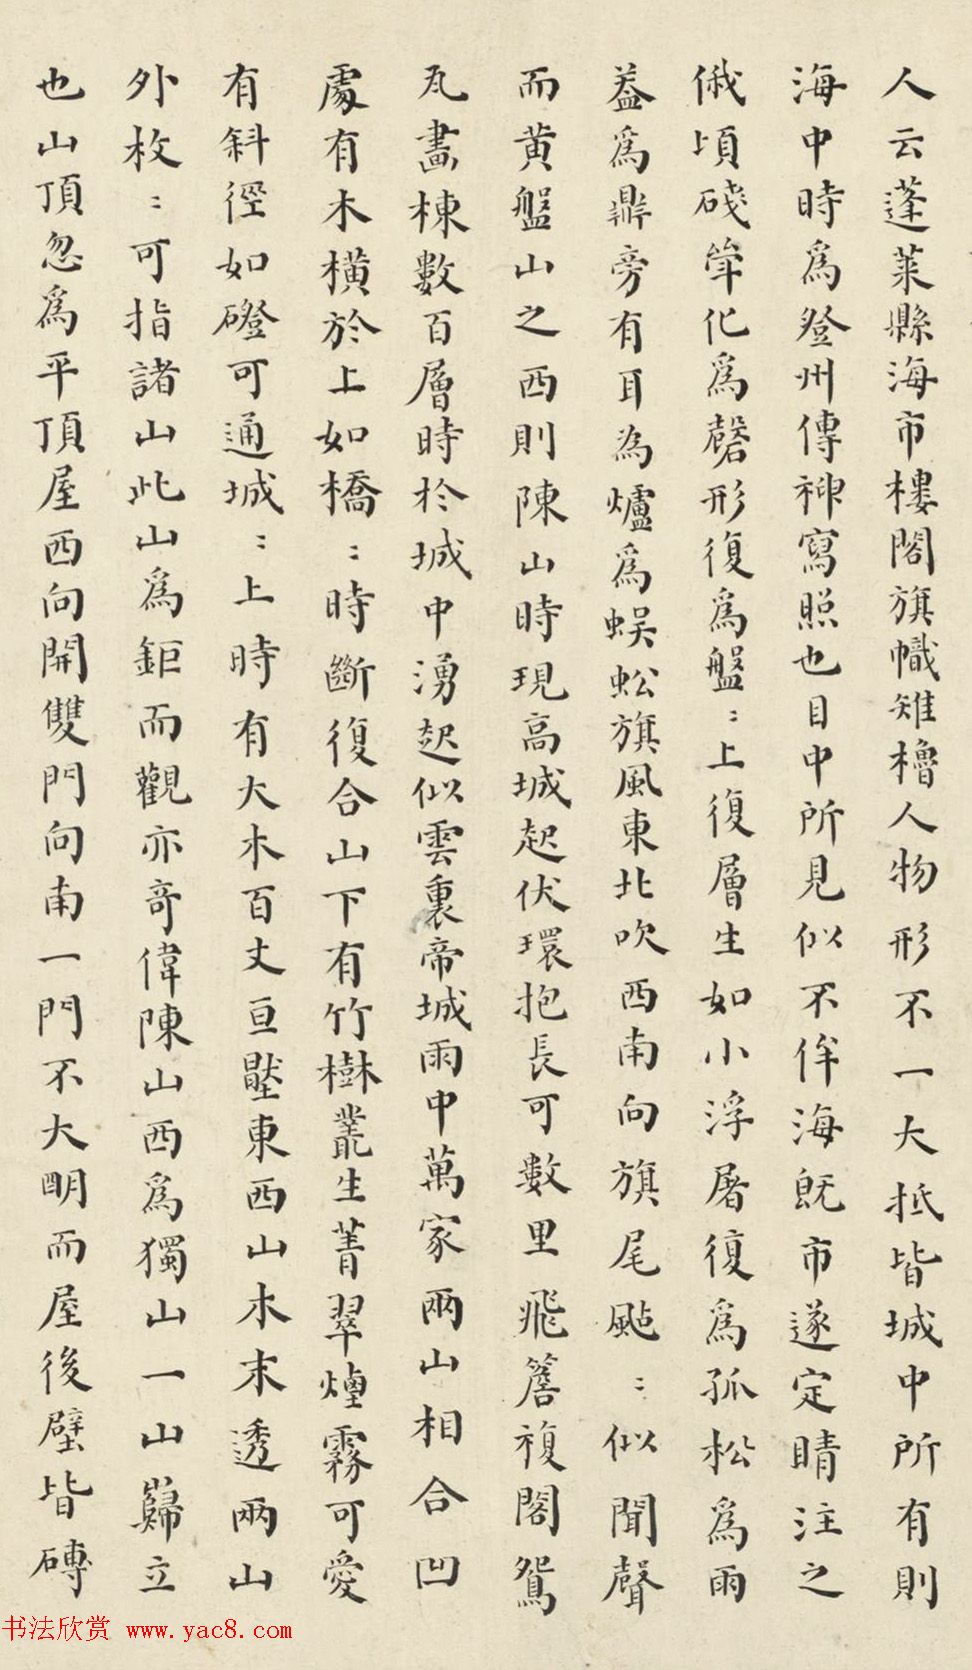 人云蓬萊縣海市樓閣旗幟雉櫓人物形不一大抵皆城中所有則
海中時爲登州傳神寫照也目中所見似不侔海既市遂定睛注之
俄頃磔聳化爲磬形復爲盤〻上復層生如小浮屠復爲孤松爲雨
葢爲鼎旁有耳為爐爲蜈蚣旗風東北吹西南向旗尾颭〻似聞聲
而黄盤山之西則陳山時現高城起伏環抱長可數里飛簷複閣鴛
瓦畵棟數百層時於城中湧起似雲裏帝城雨中萬家兩山相合凹
處有木橫於上如橋〻時斷復合山下有竹樹叢生菁翠煙霧可愛
有斜徑如磴可通城〻上時有大木百丈亘壓東西山木末透兩山
外枚〻可指諸山此山爲鉅而觀亦奇偉陳山西爲獨山一山巋立
也山頂忽爲平頂屋西向開雙門向南一門不大明而屋後壁皆磚
书法欣赏 www.yac8.com